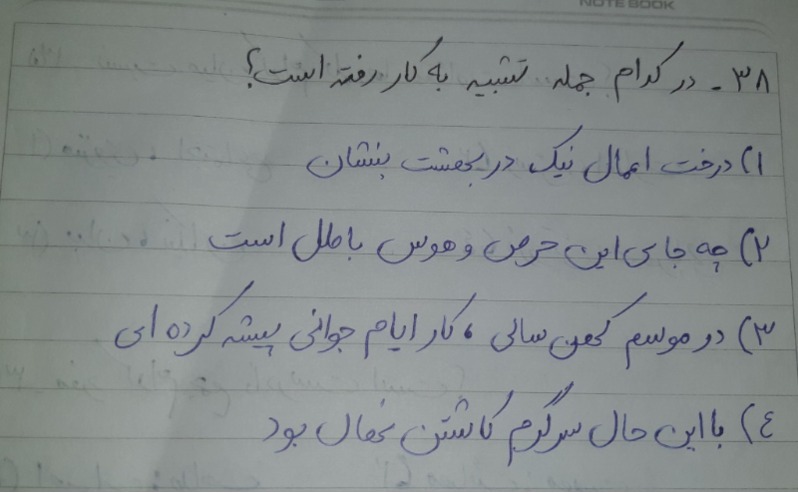 NOTE BOOK
۳۸ - در کدام جمله تشبیه به کار رفته است؟
۱) درخت اعمال نیک در بهشت بنشان
۲) چه جای این حرص و هوس باطل است
۳) در موسم کهن سالی ، کار ایام جوانی پیشه کرده ای
٤) با این حال سرگرم کاشتن نهال بود